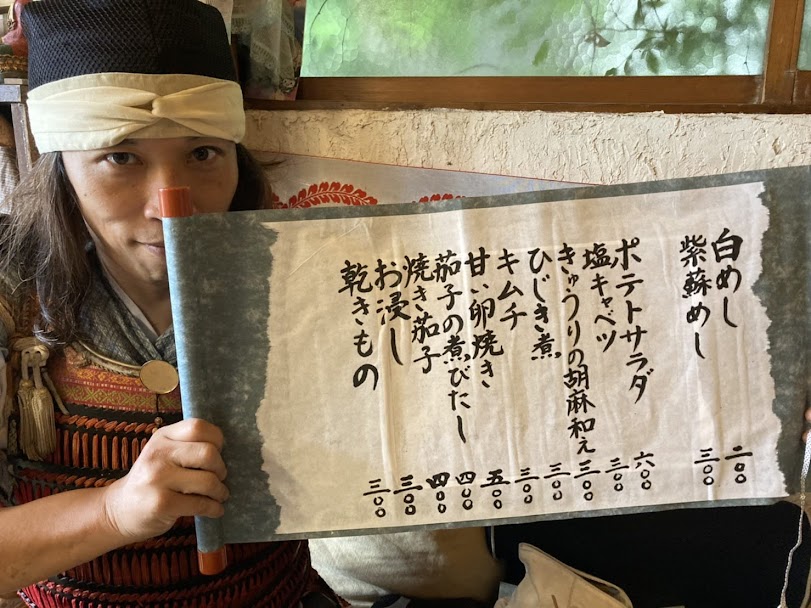 白めし 二〇〇
紫蘇めし 三〇〇
ポテトサラダ 六〇〇
塩キャベツ 三〇〇
きゅうりの胡麻和え 三〇〇
ひじき煮 三〇〇
キムチ 三〇〇
甘い卵焼き 五〇〇
茄子の煮びたし 四〇〇
焼き茄子 四〇〇
お浸し 三〇〇
乾きもの 三〇〇